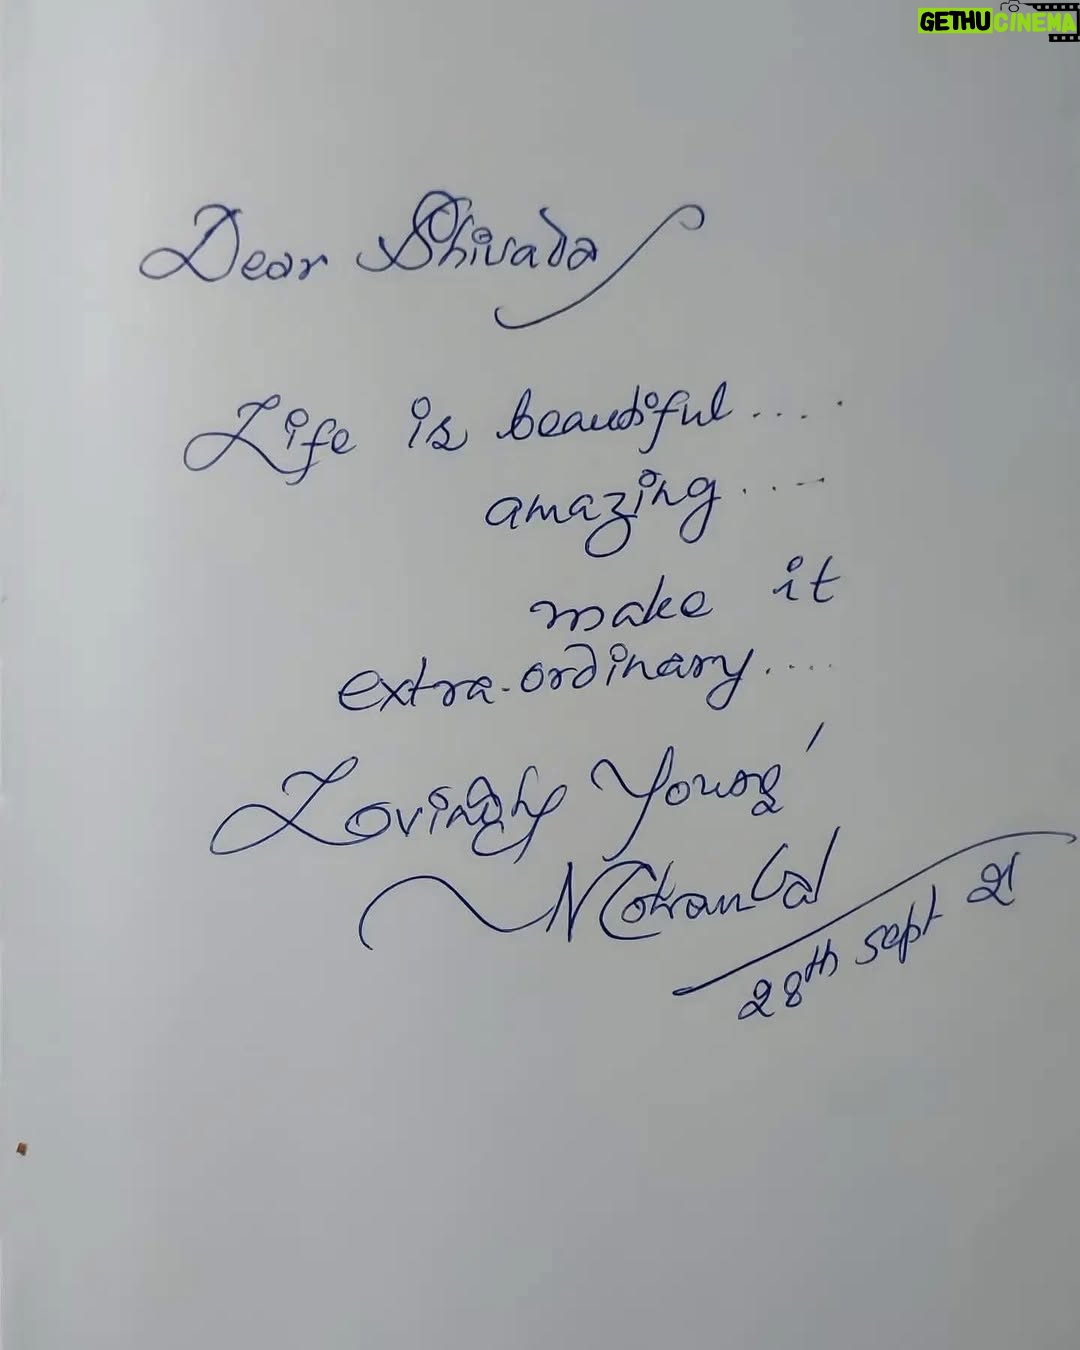 GETHU CINEMA
Dear Shivada
Life is beautiful....
amazing....
make it
extra-ordinary....
Lovingly Yours'
Mohanlal
28th Sept 21